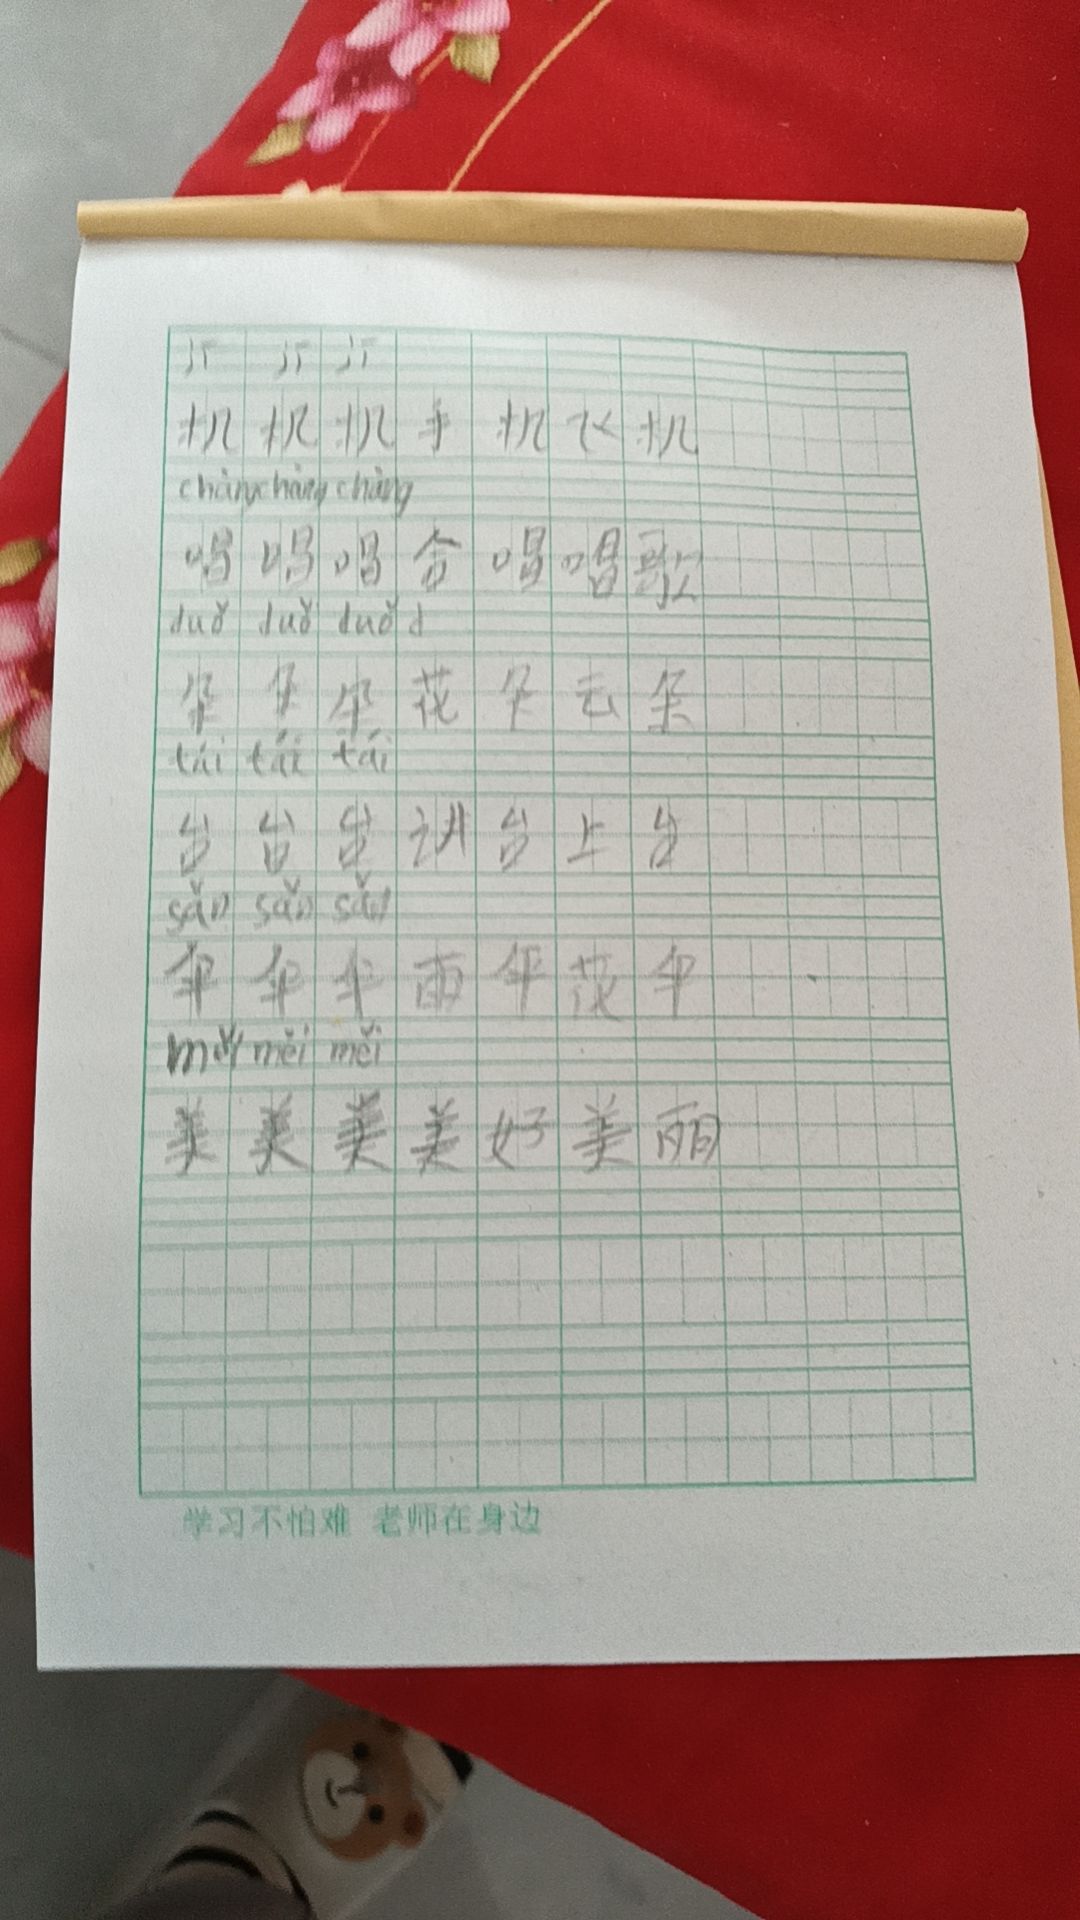 jī jī jī
机 机 机 手 机 飞 机
chàng chàng chàng
唱 唱 唱 合 唱 唱 歌
duǒ duǒ duǒ d
朵 朵 朵 花 朵 云 朵
tái tái tái
台 台 台 讲 台 上 台
sǎn sǎn sǎn
伞 伞 伞 雨 伞 花 伞
měi měi měi
美 美 美 美 好 美 丽
学习不怕难 老师在身边